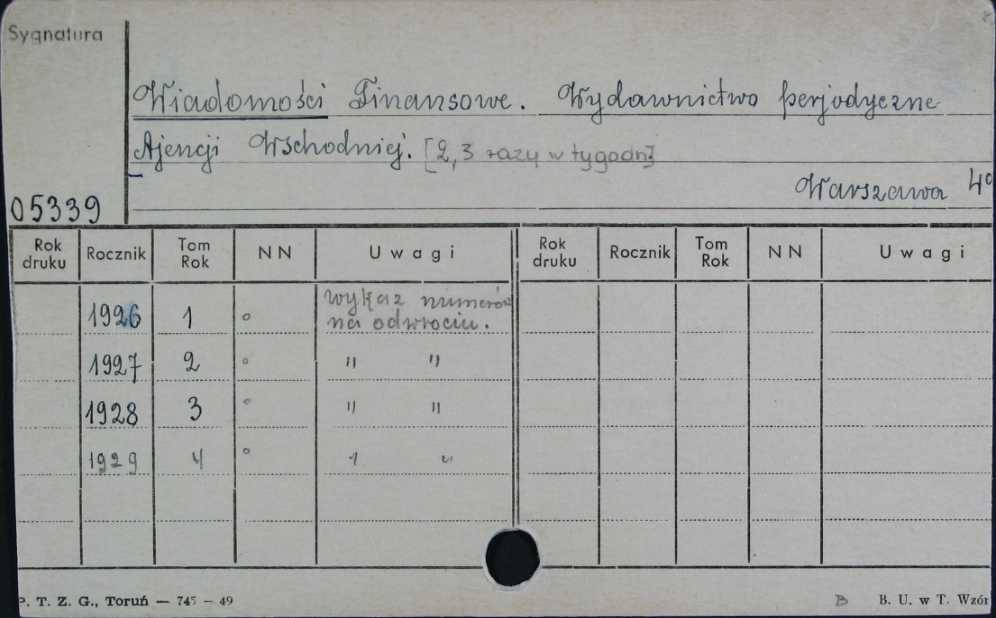 Sygnatura
Wiadomości Finansowe. Wydawnictwo perjodyczne
Ajencji Wschodniej. [2, 3 razy w tygodn]
Warszawa 4°
05339
Rok druku Rocznik Tom Rok NN Uwagi Rok druku Rocznik Tom Rok NN Uwagi
1926 1 ° wykaz numerów
na odwrociu.
1927 2 ° " "
1928 3 ° " "
1929 4 ° " "
P. T. Z. G., Toruń — 745 – 49 B B. U. w T. Wzór